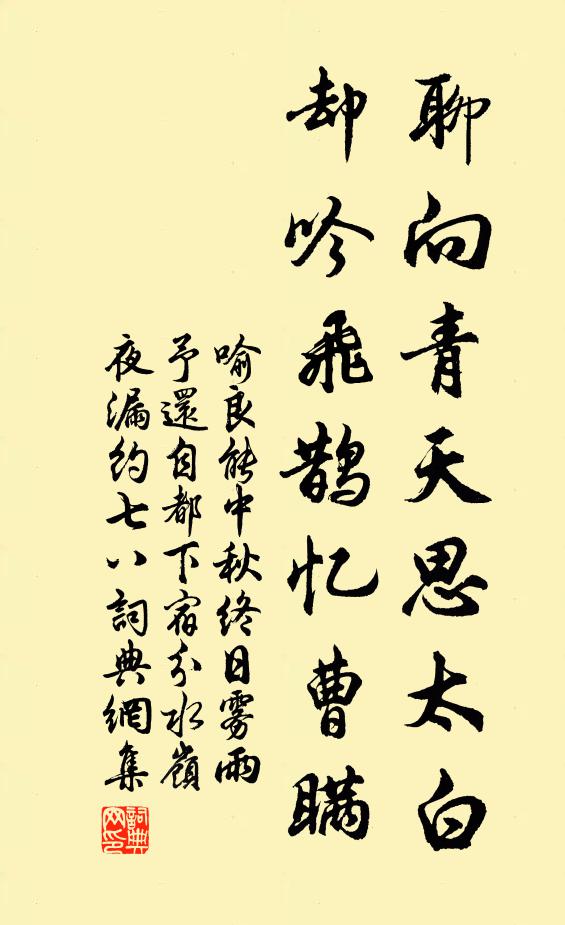 聊向青天思太白
却吟飛鵲忆曹瞒
喻良能中秋終日雾雨
予還自都下宿分水嶺
夜漏約七八詞典網集
詞典网印